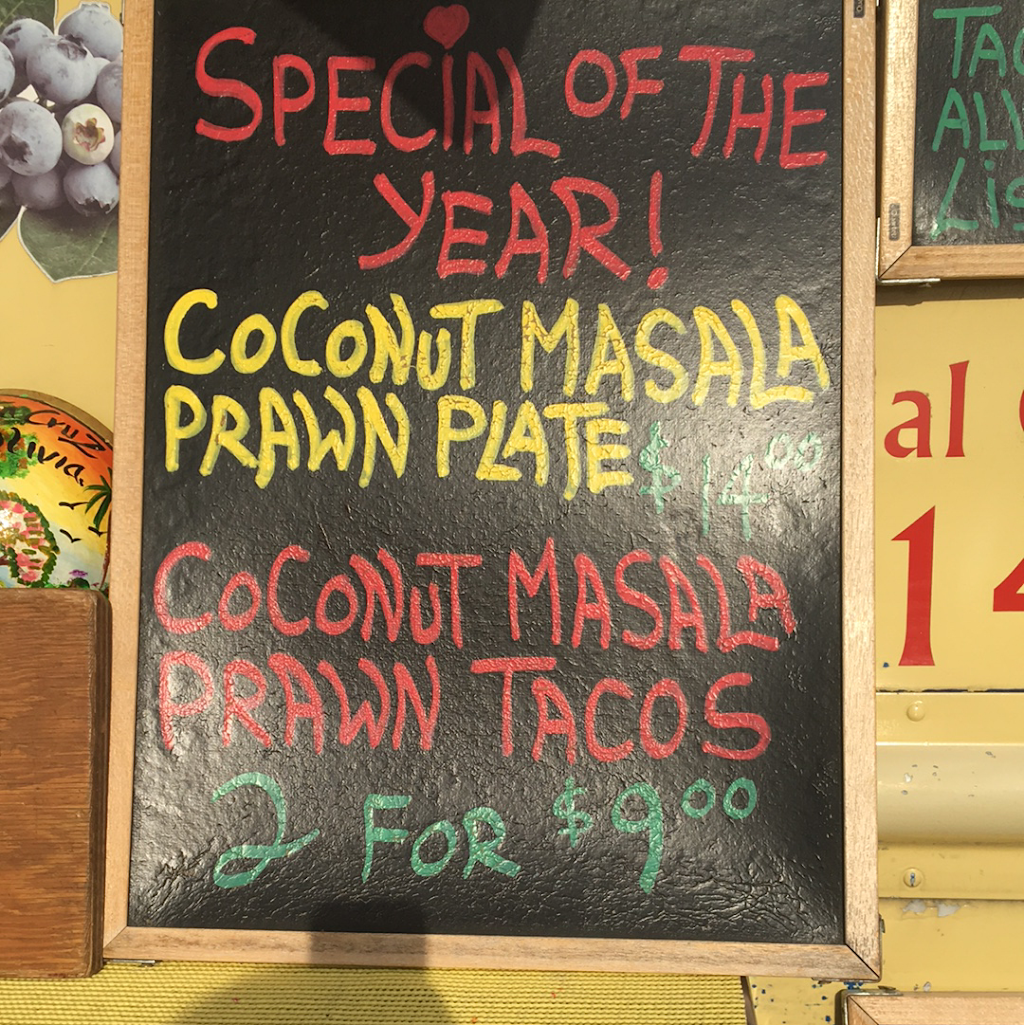 SPECiAL OF THE
YEAR!
COCONUT MASALA
PRAWN PLATE $14.00
COCONUT MASALA
PRAWN TACOS
2 FOR $9.00
al
14